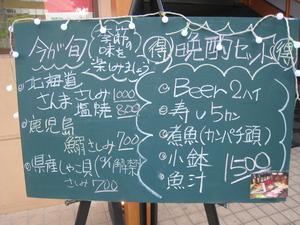 今が旬
季節の
味を
楽しみましょう
・北海道
さんま さしみ 1000
塩焼 800
・鹿児島
鰯さしみ 700
・県産しゃこ貝(9/1解禁)
さしみ 700
得 晩酌セット 得
・Beer2ハイ
・寿し5カン
・煮魚(カンパチ頭)
・小鉢
・魚汁
1500